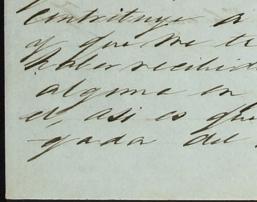 contribuye a
y que me t
haber recibid
alguna en
el, asi es que
gada del